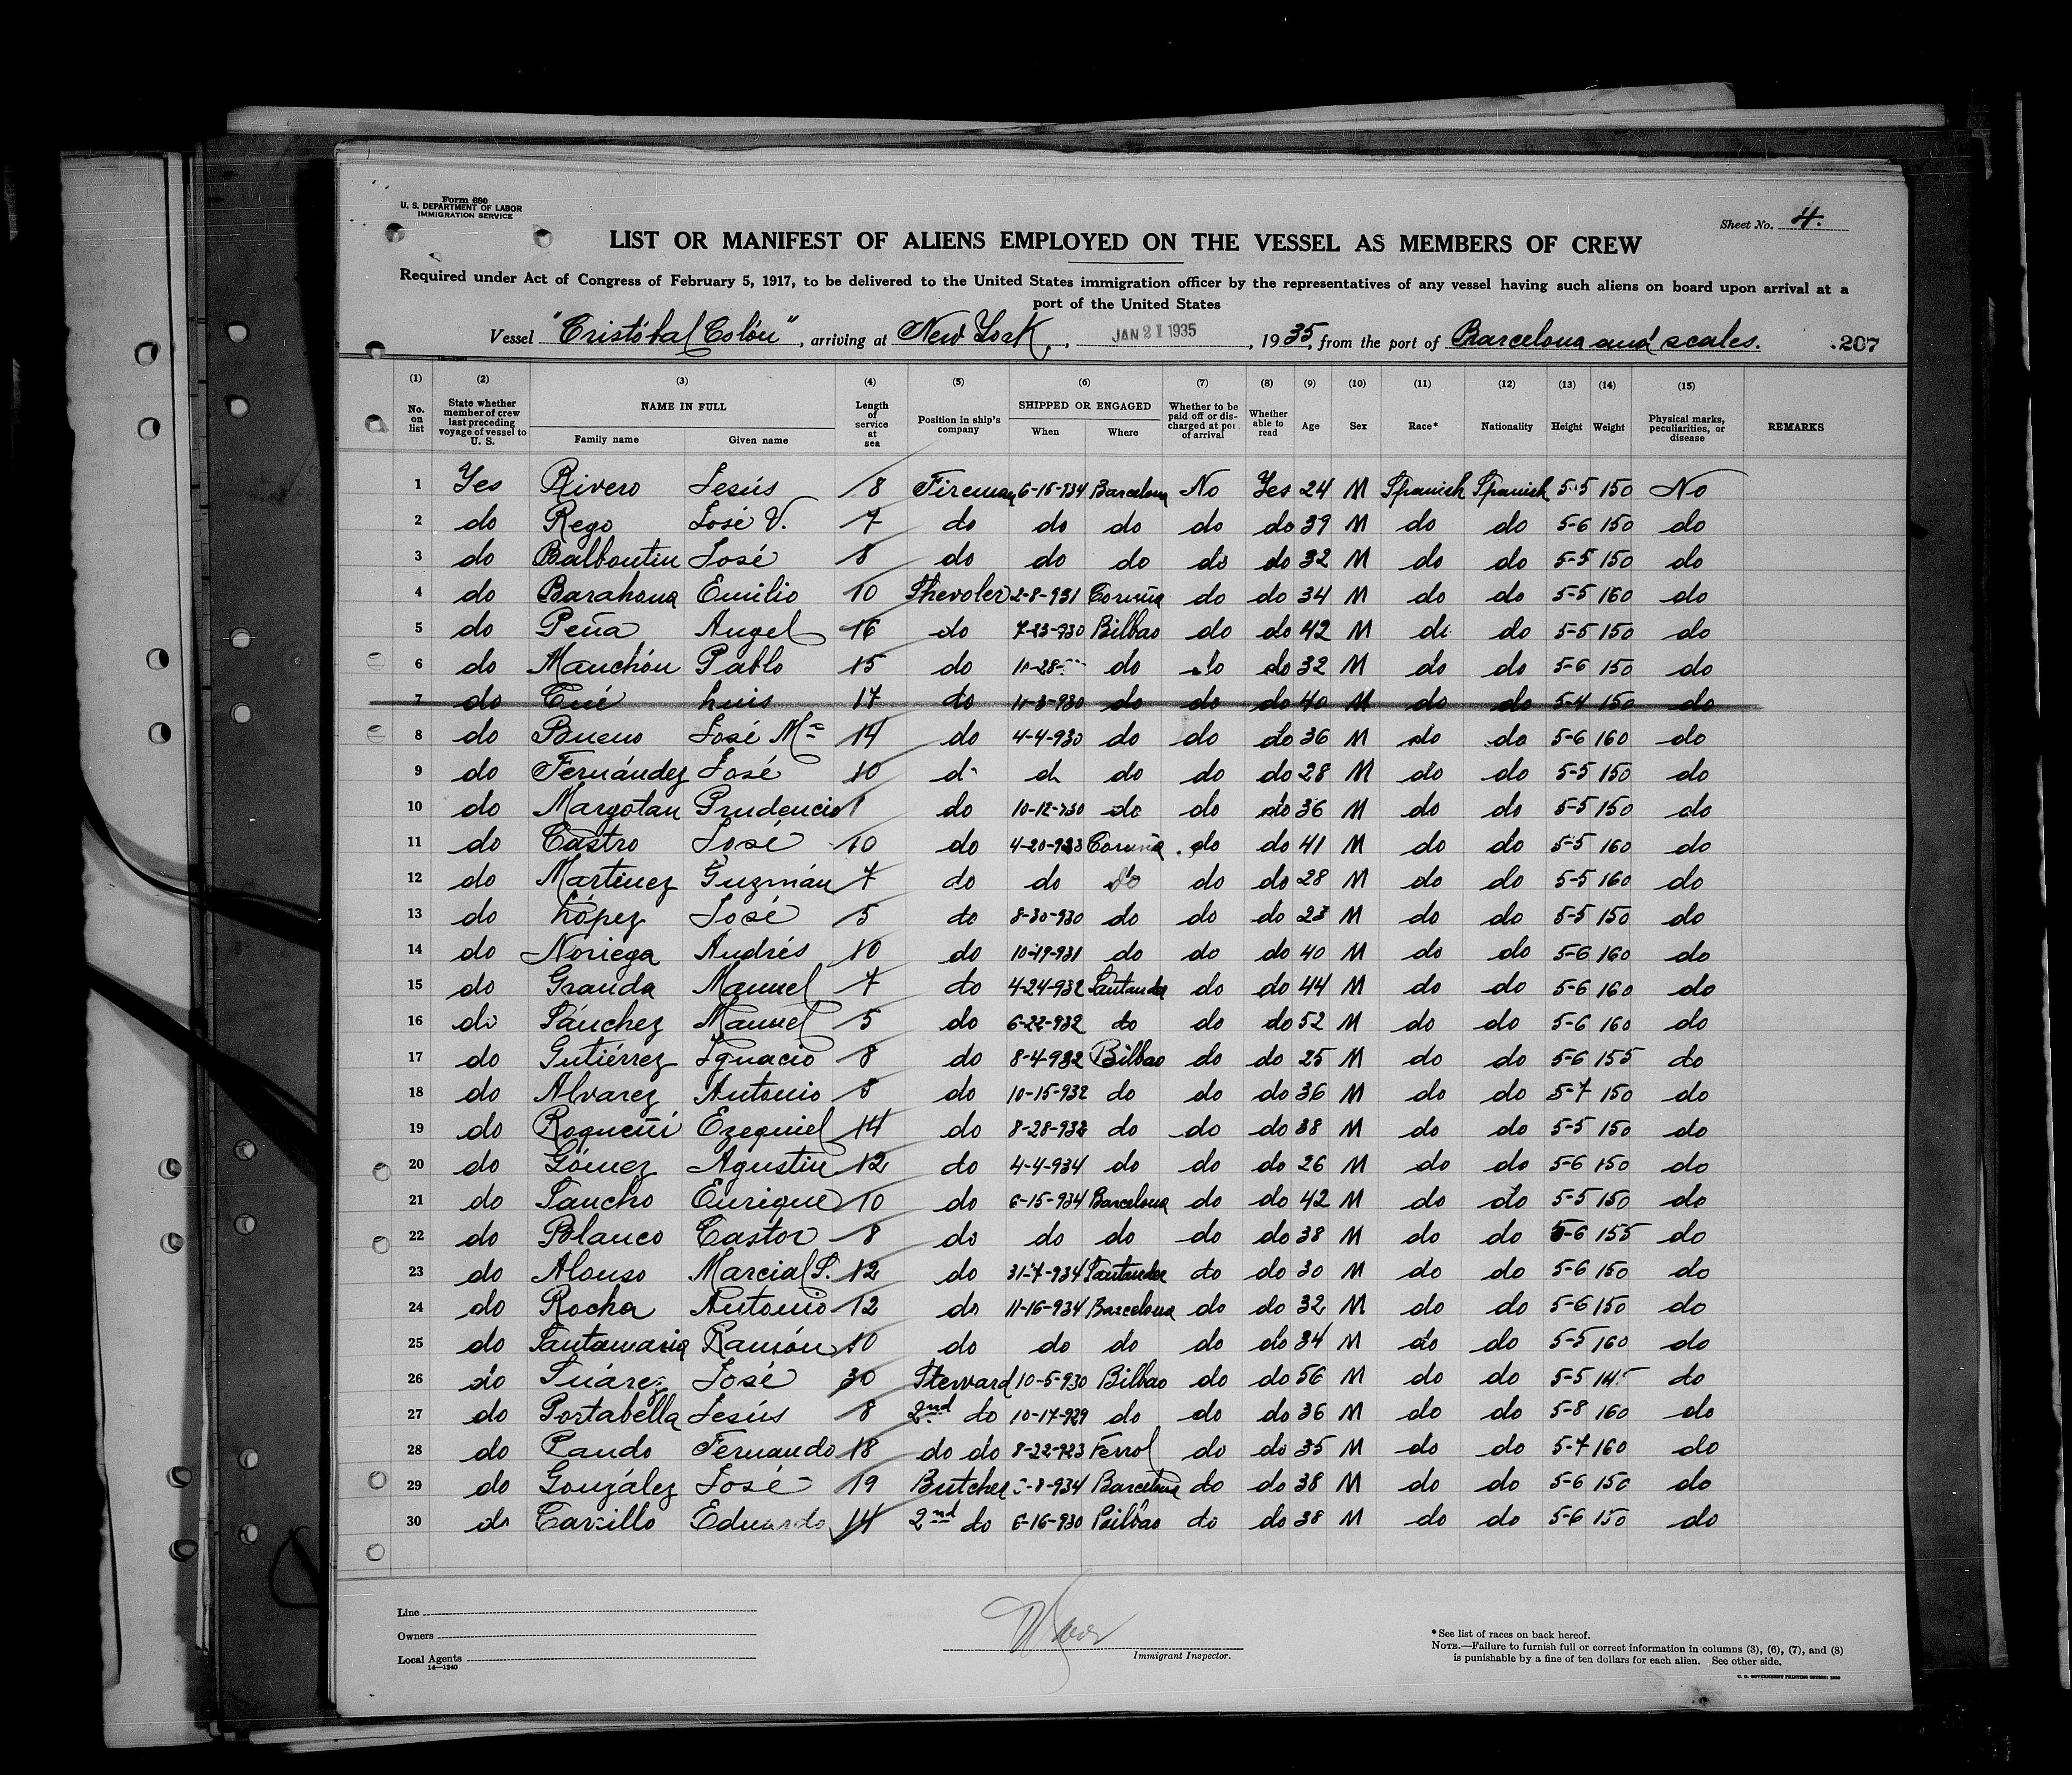 Form 680
U. S. DEPARTMENT OF LABOR
IMMIGRATION SERVICE
Sheet No. 4.
LIST OR MANIFEST OF ALIENS EMPLOYED ON THE VESSEL AS MEMBERS OF CREW
Required under Act of Congress of February 5, 1917, to be delivered to the United States immigration officer by the representatives of any vessel having such aliens on board upon arrival at a
port of the United States
Vessel "Cristóbal Colón", arriving at New York, JAN 21 1935, 1935, from the port of Barcelona and scales. 207
(1) (2) (3) (4) (5) (6) (7) (8) (9) (10) (11) (12) (13) (14) (15)
No. on list State whether member of crew last preceding voyage of vessel to U. S. NAME IN FULL Family name Given name Length of service at sea Position in ship's company SHIPPED OR ENGAGED When Where Whether to be paid off or discharged at port of arrival Whether able to read Age Sex Race* Nationality Height Weight Physical marks, peculiarities, or disease REMARKS
1 Yes Rivero Jesús 8 Fireman 6-15-934 Barcelona No Yes 24 M Spanish Spanish 5-5 150 No
2 do Rego José V. 7 do do do do do 39 M do do 5-6 150 do
3 do Balboutin José 8 do do do do do 32 M do do 5-5 150 do
4 do Barahona Emilio 10 Shevoler 2-8-931 Coruña do do 34 M do do 5-5 160 do
5 do Peña Angel 16 do 7-23-930 Bilbao do do 42 M do do 5-5 150 do
6 do Manchón Pablo 15 do 10-28- do do do 32 M do do 5-6 150 do
7 do Cué Luis 17 do 11-3-930 do do do 40 M do do 5-4 150 do
8 do Bueno José Mª 14 do 4-4-930 do do do 36 M do do 5-6 160 do
9 do Fernández José 10 do do do do do 28 M do do 5-5 150 do
10 do Margotan Prudencio 1 do 10-12-930 do do do 36 M do do 5-5 150 do
11 do Castro José 10 do 4-20-933 Coruña do do 41 M do do 5-5 160 do
12 do Martinez Guzmán 7 do do do do do 28 M do do 5-5 160 do
13 do López José 5 do 8-30-930 do do do 23 M do do 5-5 150 do
14 do Noriega Andrés 10 do 10-19-931 do do do 40 M do do 5-6 160 do
15 do Granda Manuel 7 do 4-24-932 Santander do do 44 M do do 5-6 160 do
16 do Sánchez Manuel 5 do 6-22-932 do do do 52 M do do 5-6 160 do
17 do Gutiérrez Ignacio 8 do 8-4-932 Bilbao do do 25 M do do 5-6 155 do
18 do Alvarez Antonio 8 do 10-15-932 do do do 36 M do do 5-7 150 do
19 do Rogueñi Ezequiel 14 do 8-28-933 do do do 38 M do do 5-5 150 do
20 do Gómez Agustin 12 do 4-4-934 do do do 26 M do do 5-6 150 do
21 do Sancho Enrique 10 do 6-15-934 Barcelona do do 42 M do do 5-5 150 do
22 do Blanco Castor 8 do do do do do 38 M do do 5-6 155 do
23 do Alonso Marcial S. 12 do 31-7-934 Santander do do 30 M do do 5-6 150 do
24 do Rocha Antonio 12 do 11-16-934 Barcelona do do 32 M do do 5-6 150 do
25 do Santamaria Ramón 10 do do do do do 34 M do do 5-5 160 do
26 do Suárez José 30 Steward 10-5-930 Bilbao do do 56 M do do 5-5 145 do
27 do Portabella Jesús 8 2nd do 10-17-929 do do do 36 M do do 5-8 160 do
28 do Pando Fernando 18 do do 8-22-923 Ferrol do do 35 M do do 5-7 160 do
29 do González José 19 Butcher -8-934 Barcelona do do 38 M do do 5-6 150 do
30 do Carsillo Eduardo 14 2nd do 6-16-930 Bilbao do do 38 M do do 5-6 150 do
Line
Owners
Local Agents
14—1240
Immigrant Inspector.
*See list of races on back hereof.
NOTE.—Failure to furnish full or correct information in columns (3), (6), (7), and (8)
is punishable by a fine of ten dollars for each alien. See other side.
U. S. GOVERNMENT PRINTING OFFICE: 1930